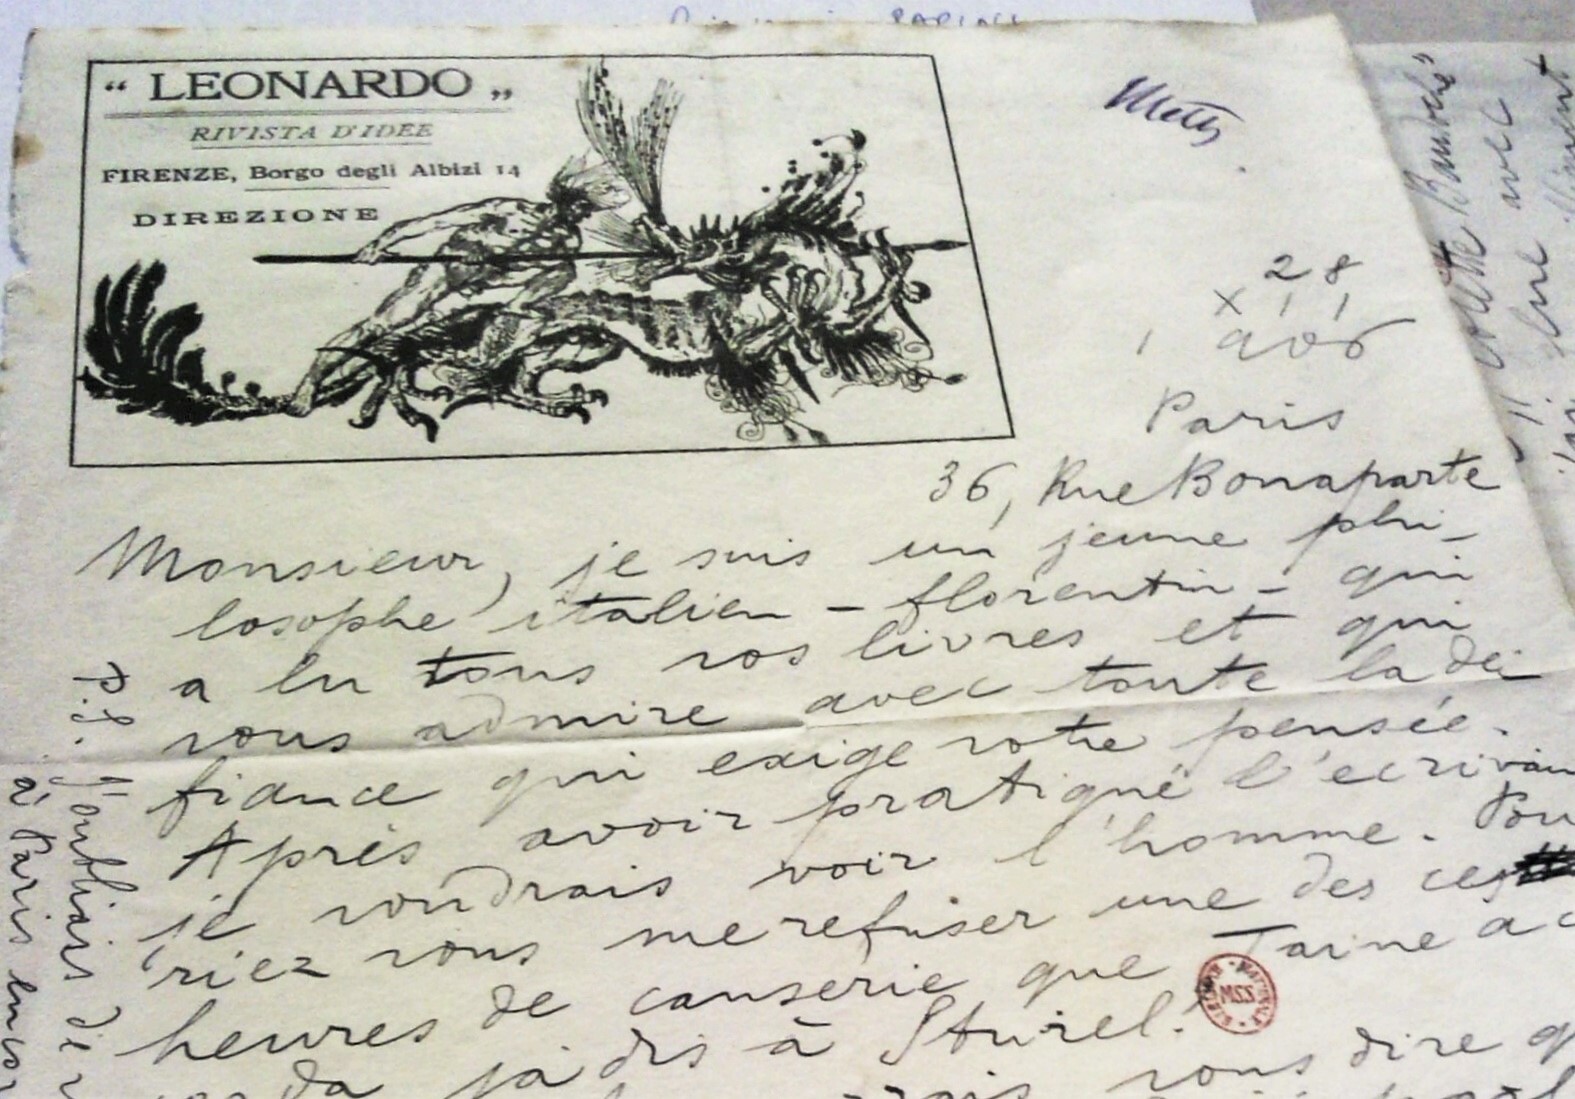 PAPINI
“ LEONARDO „
RIVISTA D'IDEE
FIRENZE, Borgo degli Albizi 14
DIREZIONE
28
X 11
1906
Paris
36, Rue Bonaparte
Monsieur, je suis un jeune phi-
losophe italien - florentin - qui
a lu tous vos livres et qui
vous admire avec toute la dé
fiance qui exige votre pensée.
Après avoir pratiqué l'ecrivain
je voudrais voir l'homme. Pou
riez vous me refuser une des ces
heures de causerie que Taine ac
da jadis à Sturel.
vous dire q
P.S. j'oubliais de
à Paris
MSS.
avec
une